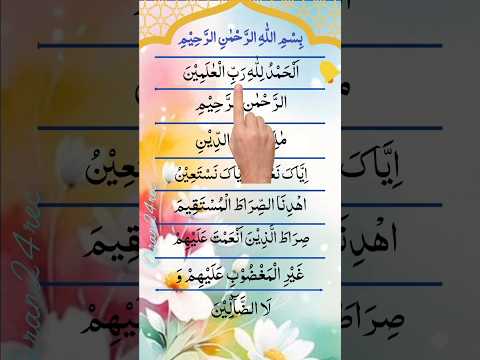 بِسْمِ اللّٰهِ الرَّحْمٰنِ الرَّحِيْمِ
اَلْحَمْدُ لِلّٰهِ رَبِّ الْعٰلَمِيْنَ
الرَّحْمٰنِ الرَّحِيْمِ
الدِّيْنِ
اِيَّاكَ نَسْتَعِيْنُ
اهْدِنَا الصِّرَاطَ الْمُسْتَقِيْمَ
صِرَاطَ الَّذِيْنَ اَنْعَمْتَ عَلَيْهِمْ
غَيْرِ الْمَغْضُوْبِ عَلَيْهِمْ وَ
لَا الضَّآلِّيْنَ